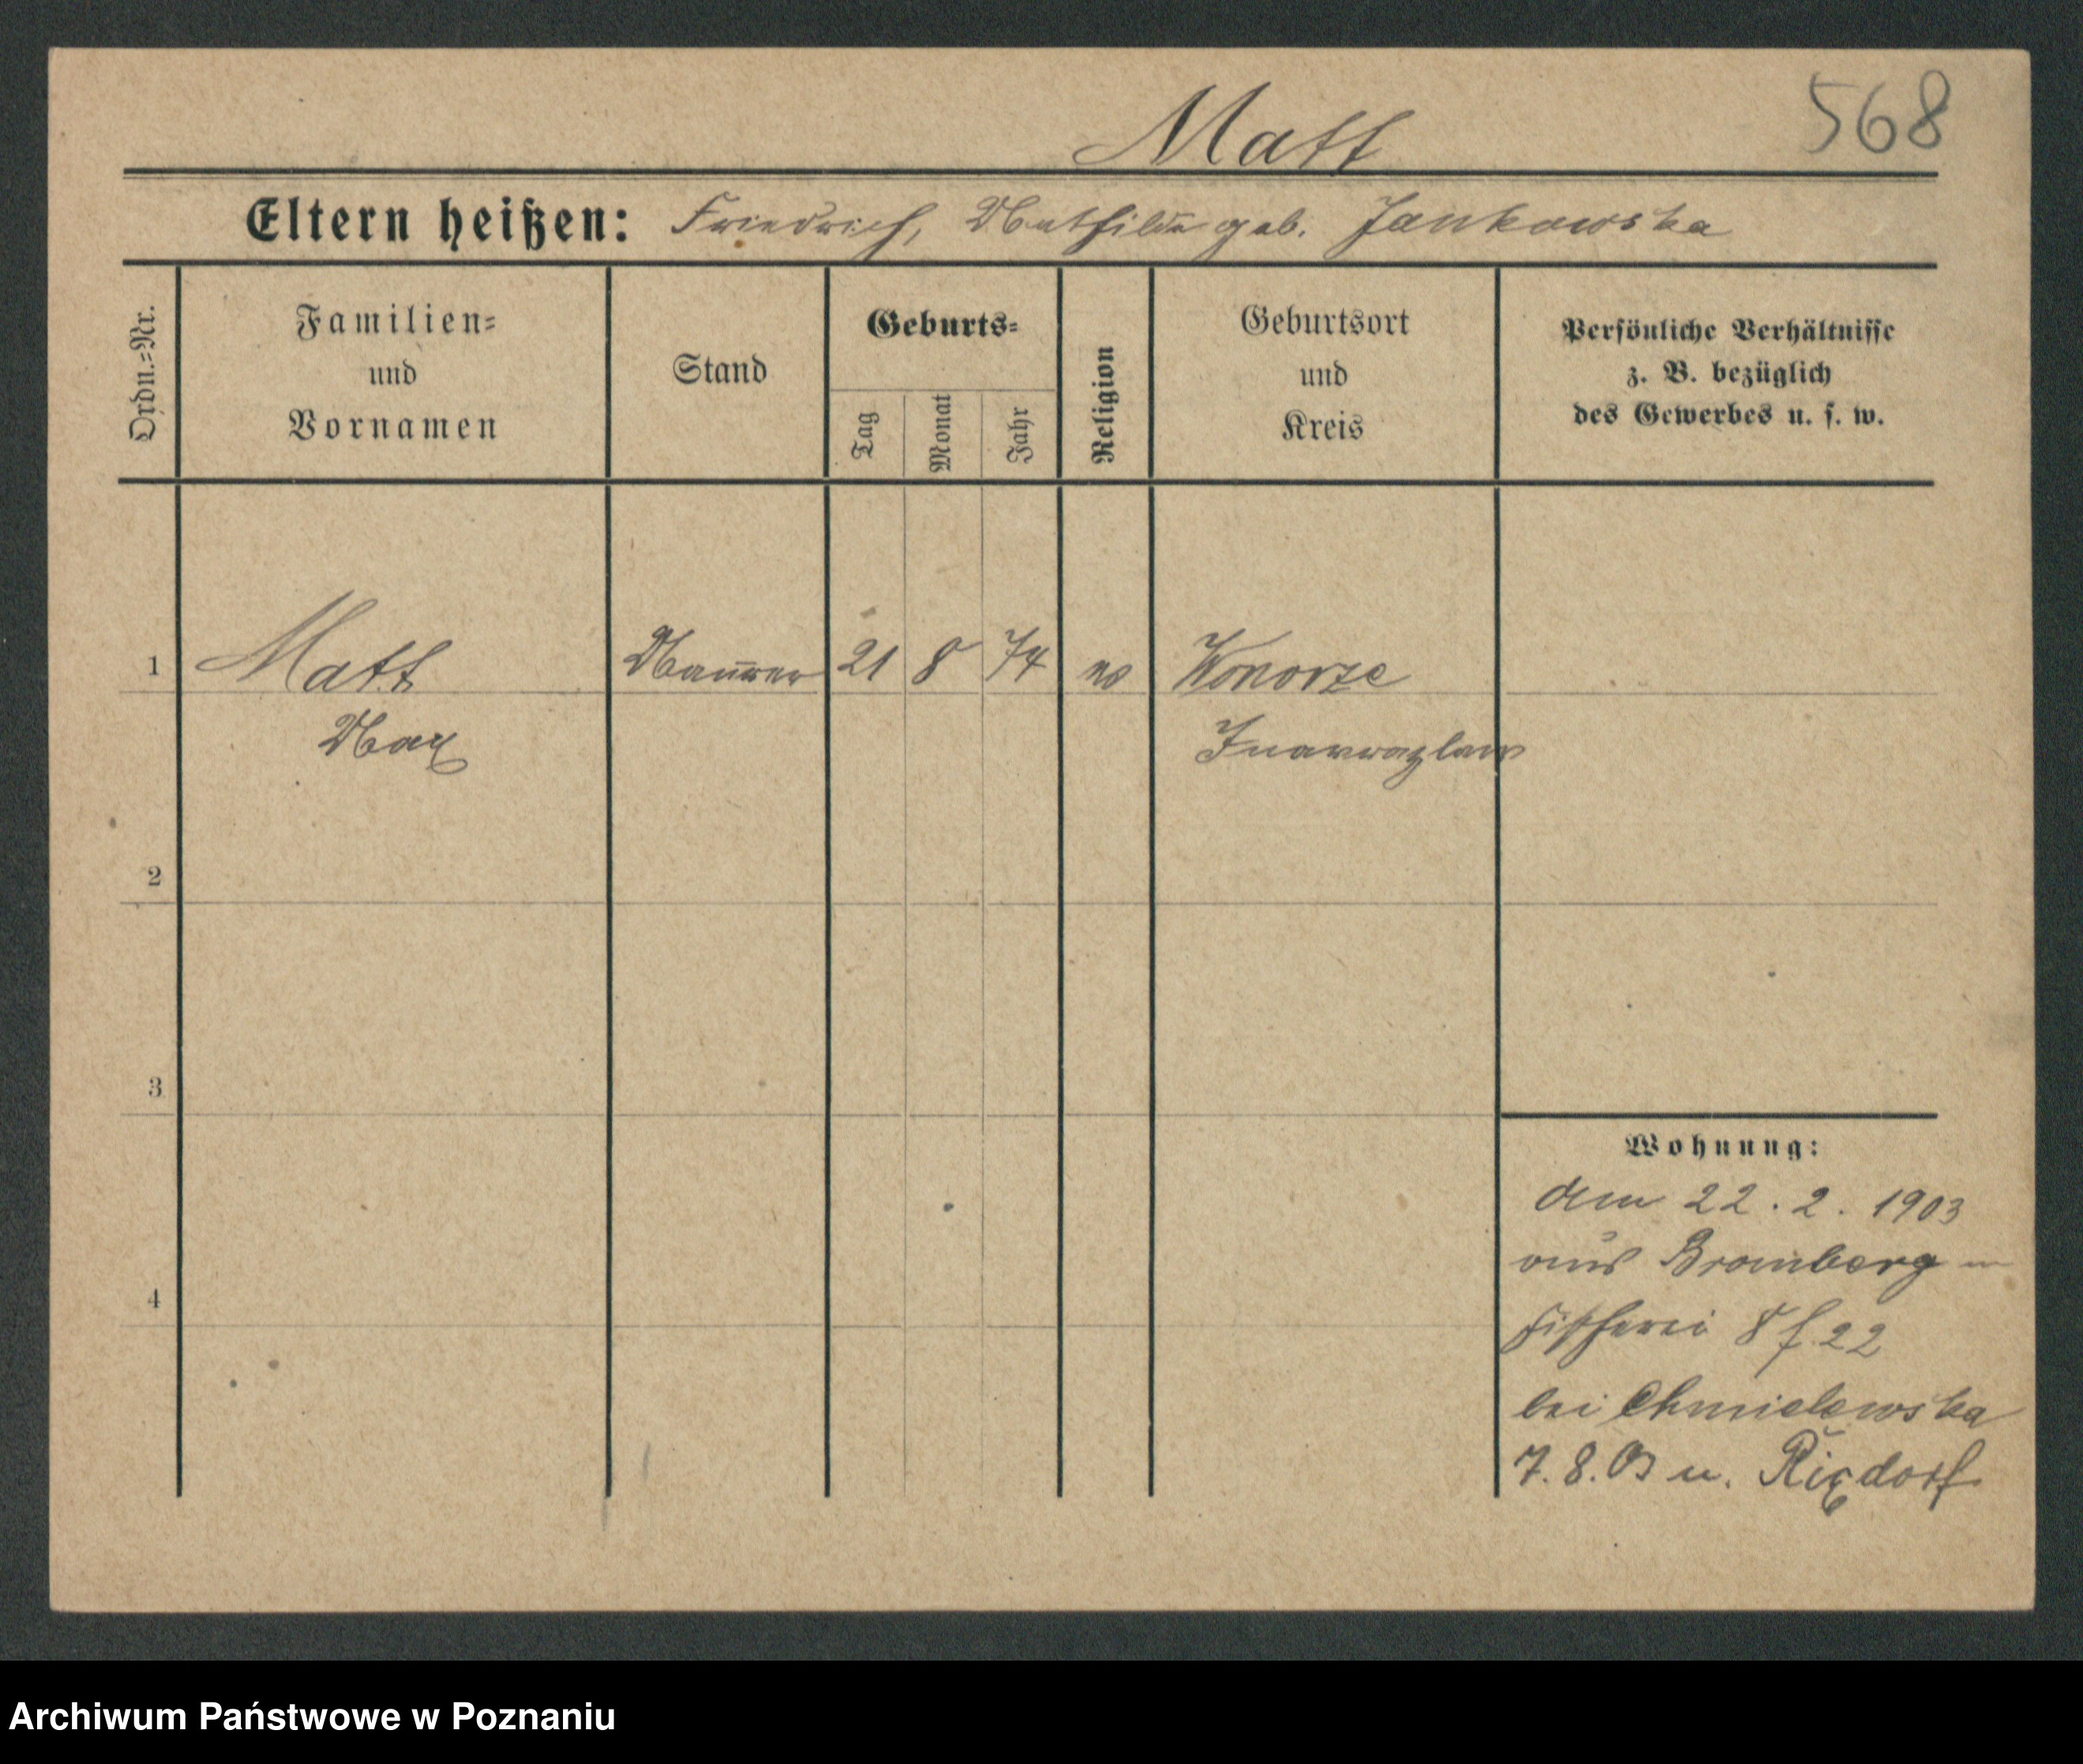 568
Matt
Eltern heißen: Friedrich, Mathilde geb. Jankowska
Ordn.=Nr.
Familien=
und
Vornamen
Stand
Geburts=
Tag
Monat
Jahr
Religion
Geburtsort
und
Kreis
Persönliche Verhältnisse
z. B. bezüglich
des Gewerbes u. s. w.
1 Matt Maurer 21 8 74 Wonorze
Max Inowrazlaw
2
3
4
Wohnung:
Am 22. 2. 1903
aus Bromberg
Fischerei 8 22
bei Chmielewska
7. 8. 03 n. Rixdorf
Archiwum Państwowe w Poznaniu